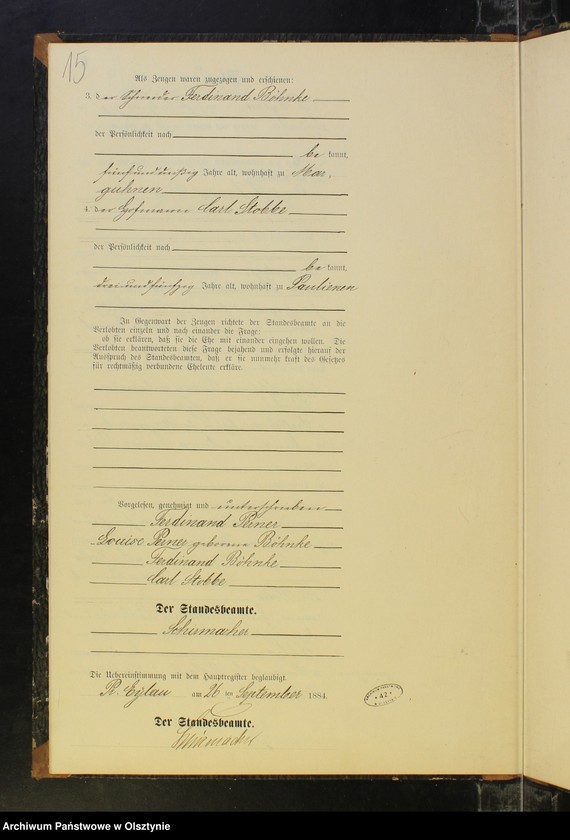 15
Als Zeugen waren zugezogen und erschienen:
3. der Schneider Ferdinand Böhnke
der Persönlichkeit nach
be kannt,
fünfunddreißig Jahre alt, wohnhaft zu Mar-
guhnen
4. der Hofmann Carl Stobbe
der Persönlichkeit nach
be kannt,
dreiundfünfzig Jahre alt, wohnhaft zu Paulienen
In Gegenwart der Zeugen richtete der Standesbeamte an die
Verlobten einzeln und nach einander die Frage:
ob sie erklären, daß sie die Ehe mit einander eingehen wollen. Die
Verlobten beantworteten diese Frage bejahend und erfolgte hierauf der
Ausspruch des Standesbeamten, daß er sie nunmehr kraft des Gesetzes
für rechtmäßig verbundene Eheleute erkläre.
Vorgelesen, genehmigt und unterschrieben
Ferdinand Perner
Louise Perner geborene Böhnke
Ferdinand Böhnke
Carl Stobbe
Der Standesbeamte.
Schumacher
Die Uebereinstimmung mit dem Hauptregister beglaubigt
Pr. Eylau am 26 ten September 1884.
Der Standesbeamte.
Schumacher
42
Archiwum Państwowe w Olsztynie